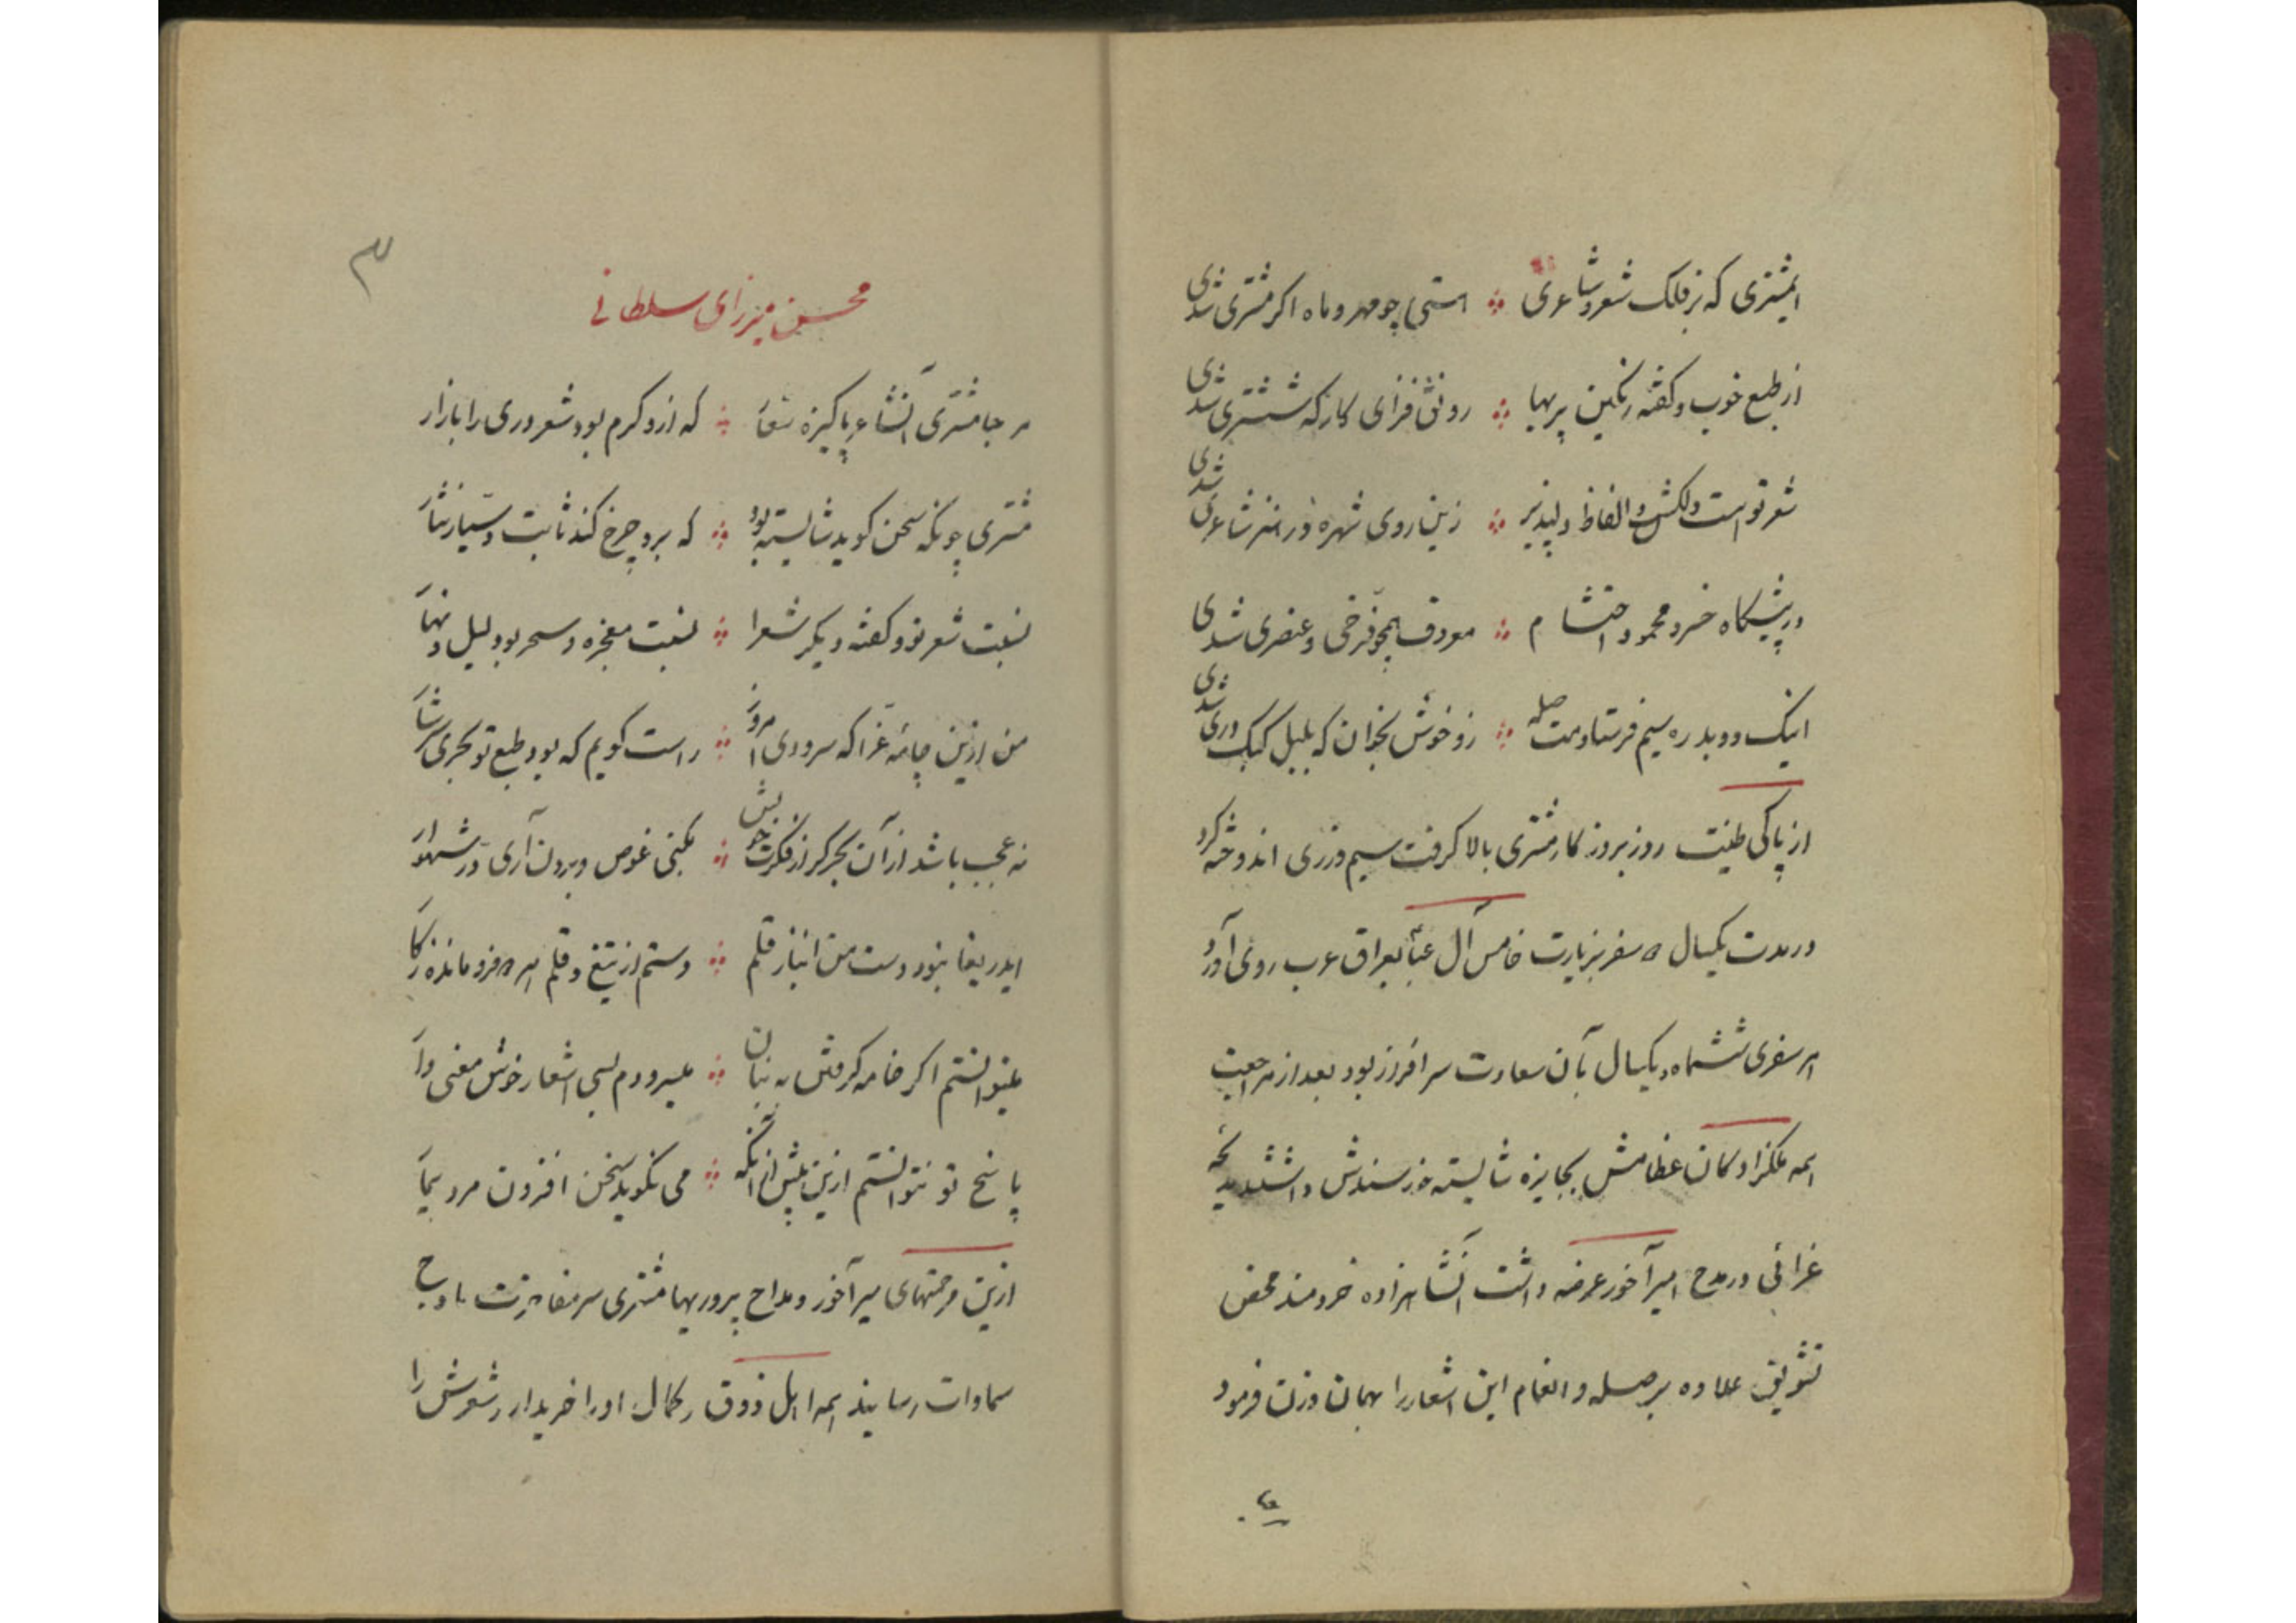 ایمشتری که بر فلک شعر و شاعری ❖ استی چو مهر و ماه اگر مشتری شدی
از طبع خوب و گفته رنگین پربها ❖ رونق فزای کارگه ششتری شدی
شعر تو است دلکش و الفاظ دلپذیر ❖ زین روی شهره در هنر شاعری شدی
در پیشگاه خسرو محمود احتشام ❖ همچو فرخی و عنصری شدی
اینک دو بدره سیم فرستادمت صله ❖ رو خوش بخوان که بلبل کبک دری شدی
از پاکی طینت روز بروز کار مشتری بالا گرفت سیم و زری اندوخته کرد
در مدت یکسال ۵ سفر بزیارت خامس آل عبا بعراق عرب روی آورد
هر سفری ششماه و یکسال بآن سعادت سرافراز بود بعد از مراجعت
همه ملکزادگان عظامش بجایزه شایسته خورسندش داشتند
غرائی در مدح امیرآخور عرضه داشت آنشاهزاده خردمند محض
تشویق علاوه بر صله و انعام این اشعار را بهمان وزن فرمود
محسن میرزای سلطانی
مرحبا مشتری آنشاعر پاکیزه شعار ❖ که ازو گرم بود شعر دری را بازار
مشتری چونکه سخن گوید شایسته بود ❖ که برو چرخ کند ثابت و سیار نثار
نسبت شعر تو و گفته دیگر شعرا ❖ نسبت معجزه و سحر بود لیل و نهار
من ازین چامه غرا که سرودی امروز ❖ راست گویم که بود طبع تو بحری سرشار
نه عجب باشد از آن بحر گر از فکرت خویش ❖ بکنی غوص و برون آری در شهوار
ایدریغا نبود دست من انباز قلم ❖ دستم از تیغ و قلم هر ۲ فرو مانده ز کار
میتوانستم اگر خامه گرفتن به بنان ❖ میسرودم بسی اشعار خوش معنی دار
پاسخ تو نتوانستم ازین بیش از آنکه ❖ می نگوید سخن افزون مرد بیمار
ازین مرحمتهای میرآخور و مداح پروریها مشتری سر مفاخرت باوج
سماوات رسانید همه اهل ذوق و کمال او را خریدار و شعرش را